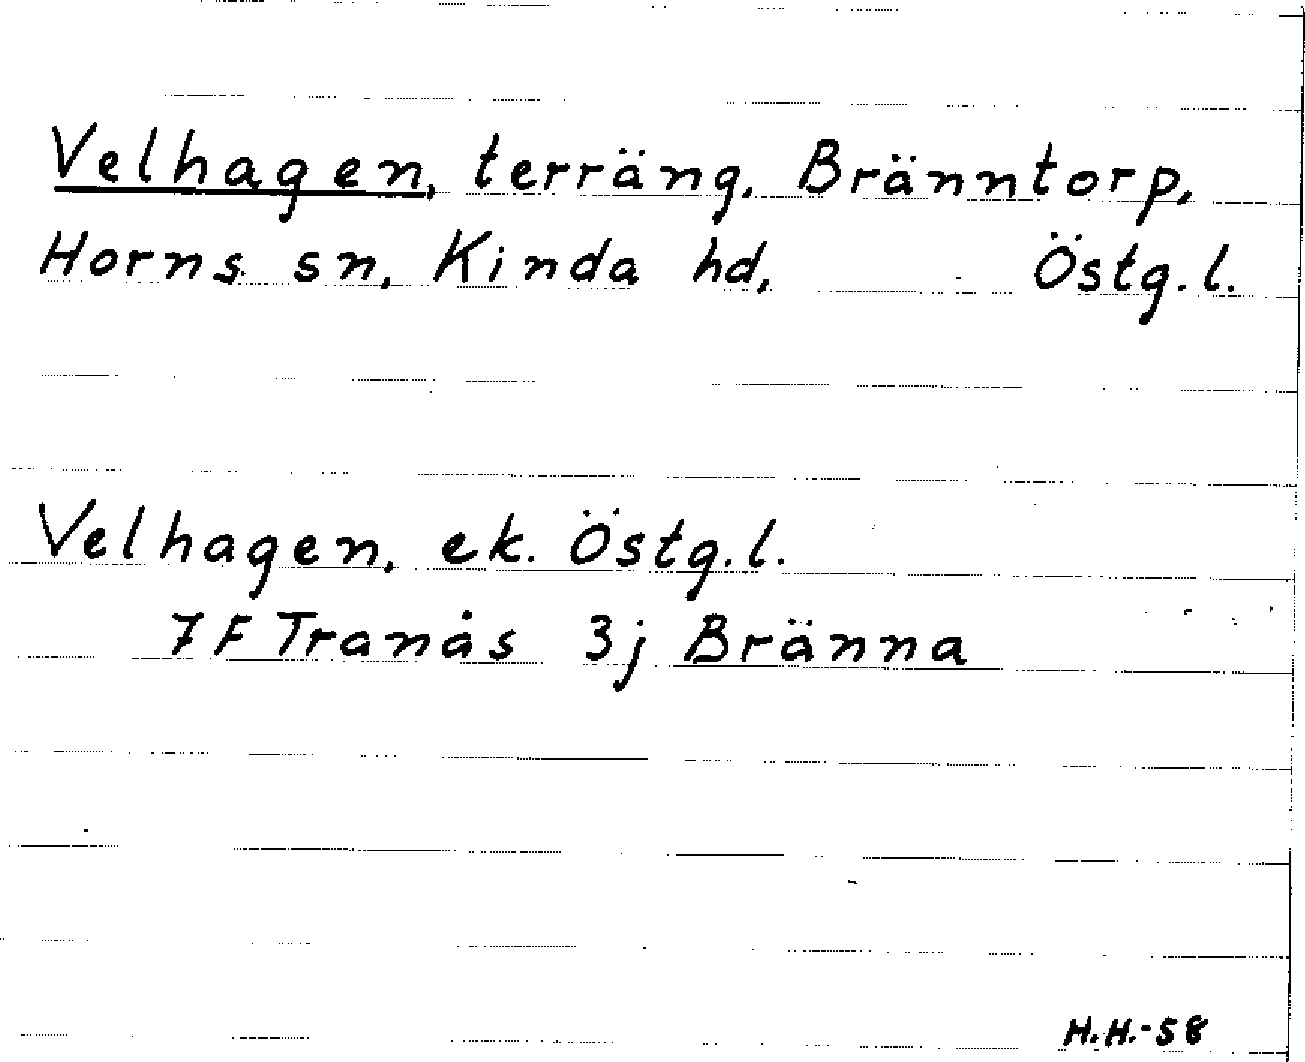 Velhagen, terräng, Bränntorp,
Horns sn, Kinda hd, Östg.l.
Velhagen, ek. Östg.l.
7F Tranås 3j Bränna
H.H.-58